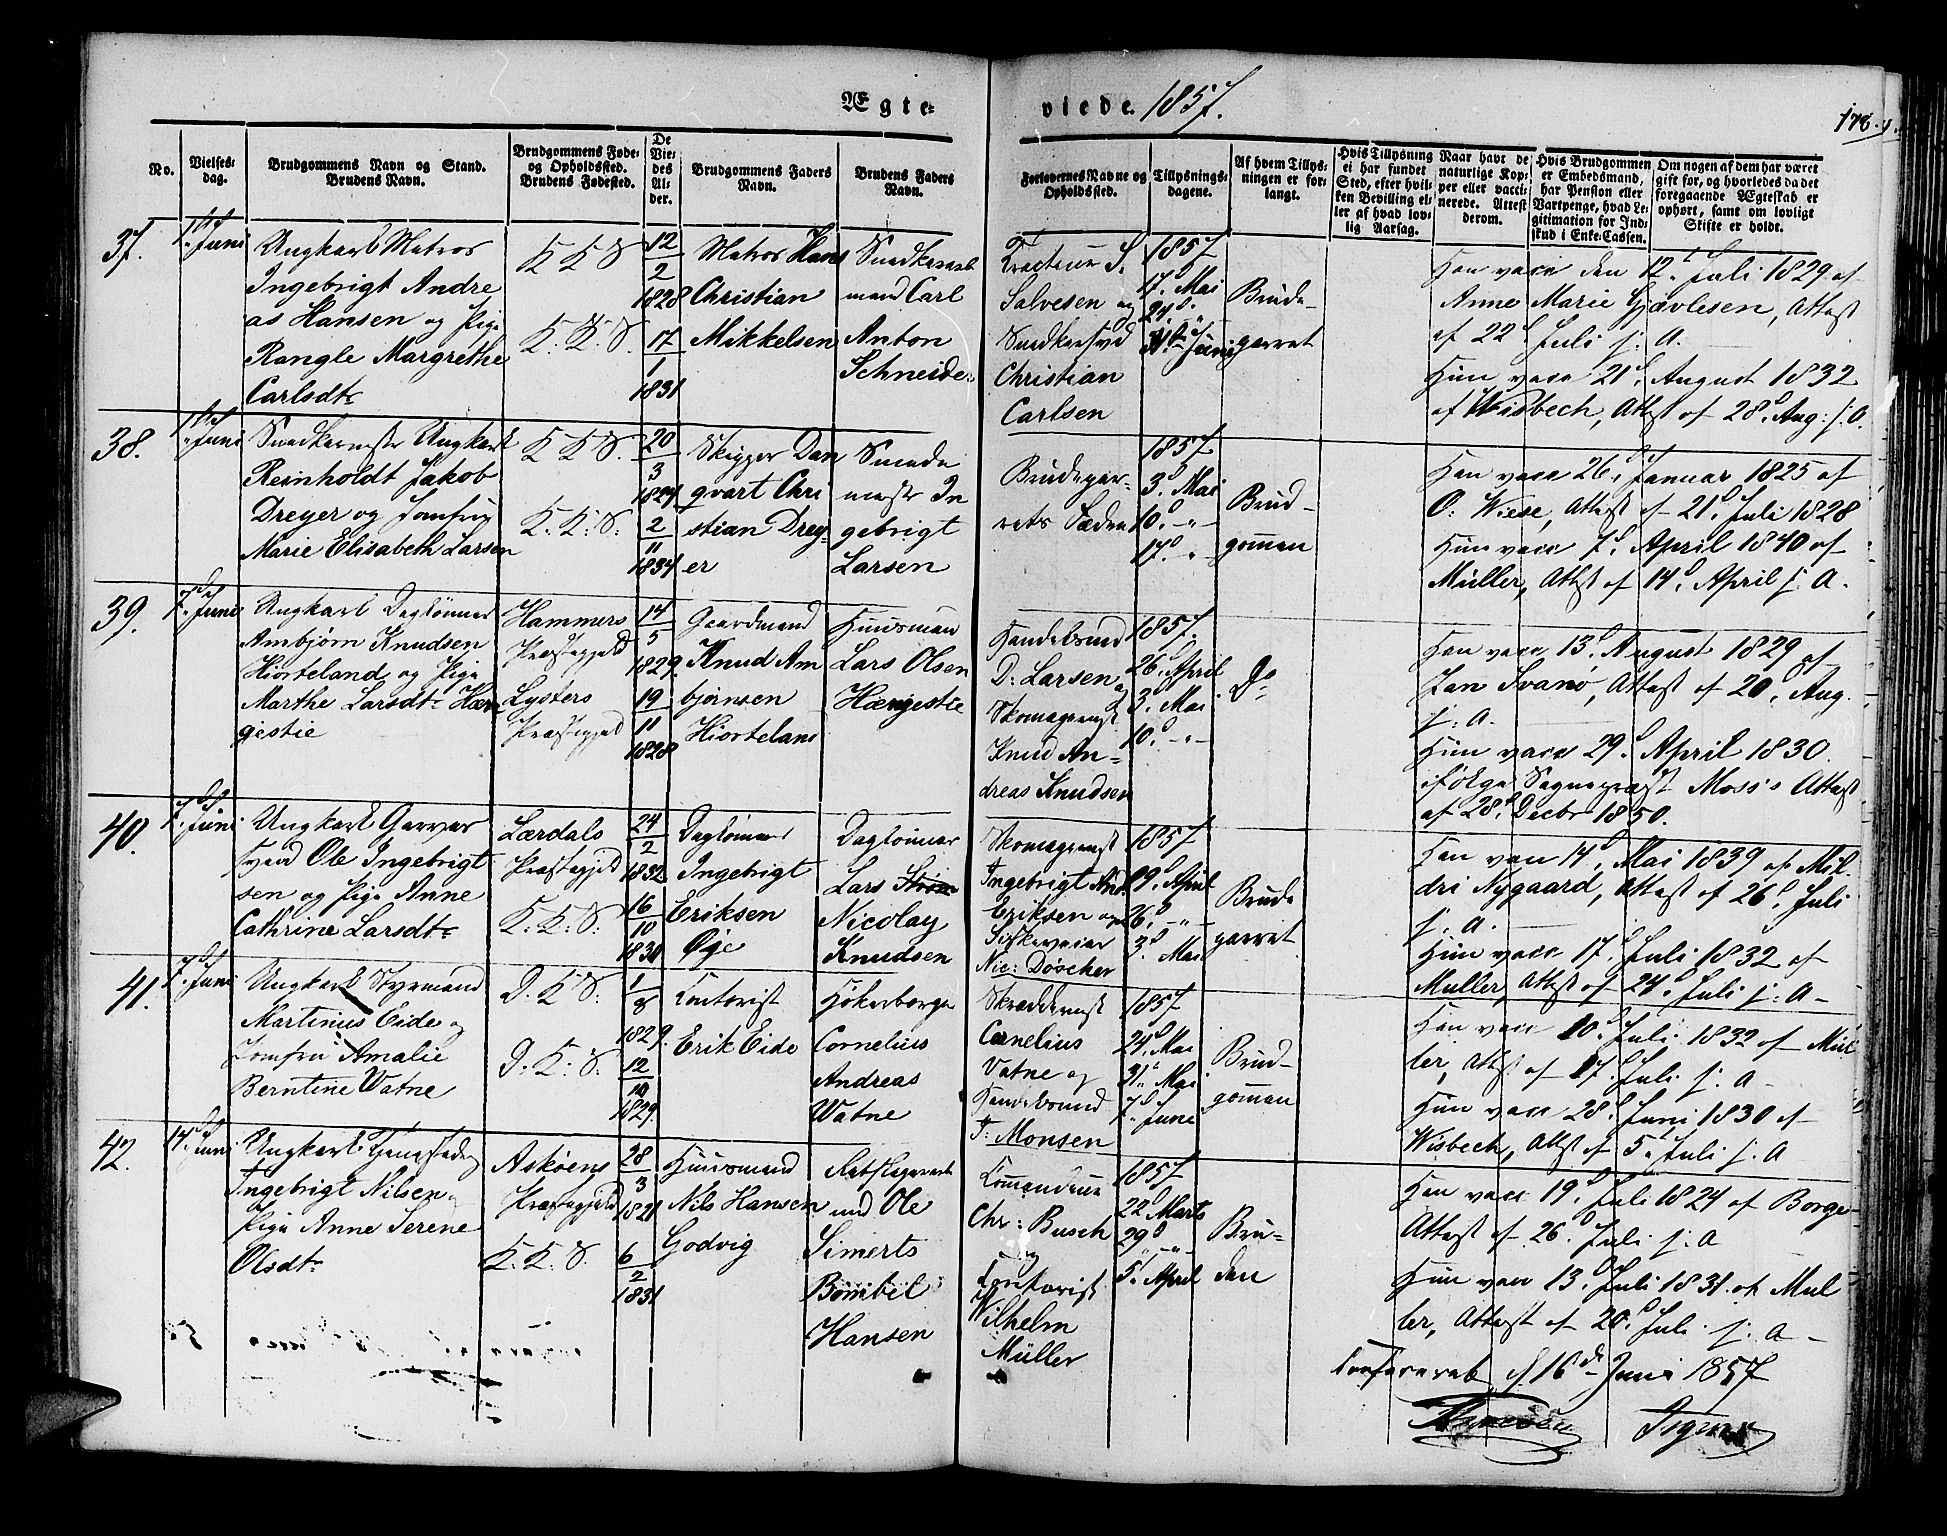 Ægte-
viede. 1857.
178.
No.
Vielses-
dag.
Brudgommens Navn og Stand.
Brudens Navn.
Brudgommens Føde-
og Opholdssted.
Brudens Fødested.
De
Vie-
des
Al-
der.
Brudgommens Faders
Navn.
Brudens Faders
Navn.
Forlovernes Navne og
Opholdssted.
Tillysnings-
dagene.
Af hvem Tillys-
ningen er for-
langt.
Hvis Tillysning
ei har fundet
Sted, efter hvil-
ken Bevilling el-
ler af hvad lov-
lig Aarsag.
Naar havt de
naturlige Kop-
per eller vacci-
nerede. Attest
derom.
Hvis Brudgommen
er Embedsmand,
har Pension eller
Vartpenge, hvad Le-
gitimation for Ind-
skud i Enke-Cassen.
Om nogen af dem har været
gift før, og hvorledes da det
foregaaende Ægteskab er
ophørt, samt om lovligt
Skifte er holdt.
37.
1ste Juni
Ungkarl Matros
Ingebrigt Andre
as Hansen og Pige
Rangle Margrethe
Carlsdtr
K K S
K. K. S.
12
2
1828
17
1
1831
Matros Hans
Christian
Mikkelsen
Snedkersvend
Carl
Anton
Schneider
S.
Salvesen og
Snedkersvd
Christian
Carlsen
1857
17d Mai
24d "
31te Juni
Brude-
parret
Han vacc den 12d Juli 1829 af
Anne Marie Gjævlesen, Attest
af 22d Juli s. A.
Hun vacc 21d August 1832
af Wisbech, Attest af 28d Aug: s. A.
38.
1ste Juni
Snedkermester Ungkarl
Reinholdt Jakob
Dreyer og Jomfru
Marie Elisabeth Larsen
K K S.
K. K. S.
20
3
1824
2
11
1834
Skipper Dan
qvart Chri
stian Drey-
er
Smede
mester In
gebrigt
Larsen
Brudepar-
rets Fædre
1857
3d Mai
10d -"-
17d "
Brud-
gommen
Han vacc 26d Januar 1825 af
O. Wiese, Attest af 21d Juli 1828
Hun vacc 7d April 1840 af
Müller, Attest af 14d April s. A.
39.
7d Juni
Ungkarl Daglønner
Ambjørn Knudsen
Hiorteland og Pige
Marthe Larsdtr Hæn
gestie
Hammers
Præstegjeld
Lysters
Præstegjeld
14
5
1829.
19
11
1828
Gaardmand
Knud Am
bjørnsen
Hiorteland
Huusmand
Lars Olsen
Hængestie
Handelsmand
D. Larsen og
Skomagermest
Knud An-
dreas Knudsen
1857.
26d April
3d Mai
10d -"-
Do
Han vacc 13d August 1829 af
Jan Svanø, Attest af 20d Aug.
s. A.
Hun vacc 29d April 1830.
ifølge Sognepræst Moss's Attest
af 28d Decbr 1850.
40.
7d Juni
Ungkarl Garver
svend Ole Ingebrigt
sen og Pige Anne
Cathrine Larsdtr
Lærdals
Præstegjeld
K. K. S.
24
2
1832
16
10
1830
Dagløнner
Ingebrigt
Eriksen
Øye
Dagløнner
Lars
Nicolay
Knudsen
Skomagermest
Ingebrigt
Eriksen og
Nic: Døscher
1857
19d April
26d -"-
3d Mai
Brude
parret
Han vacc 14d Mai 1839 af Mil-
dri Nygaard, Attest af 26d Juli
s. A.
Hun vacc 17d Juli 1832 af
Müller, Attest af 24d Juli s. A.
41.
7d Juni
Ungkarl Styrmand
Martinus Eide og
Jomfru Amalie
Berntine Watne
D. K. S.
D. K. S.
1
8
1829.
12
10
1829
Contorist
Erik Eide
Høkerborger
Cornelius
Andreas
Watne
Skræddermest
Cornelius
Vatne og
Handelsmand
T. Monsen
1857
24d Mai
31d Mai
7d June
Brud-
gommen
Han vacc 10d Juli 1832 af Mül
ler, Attest af 17d Juli s. A
Hun vacc 28d Juni 1830 af
Wisbech, Attest af 5d Juli s. A
42.
14d Juni
Ungkarl
Ingebrigt Nilsen og
Pige Anne Serene
Olsdtr
Askøens
Præstegjeld
K. K. S.
28
3
1821
6
2
1831
Huusmand
Nils Hansen
Godvig
Ole
Simerts
Bømbel
Hansen
Commandeur
Chr: Busch
og
Contorist
Wilhelm
Müller
1857
22d Marts
29d -"-
5d April
Bru-
den
Han vacc 19d Juli 1824 af Borge
Attest af 26d Juli s. A
Hun vacc 13d Juli 1831 af Mul
ler, Attest af 20d Juli s. A
Confererede d. 16de Juni 1857